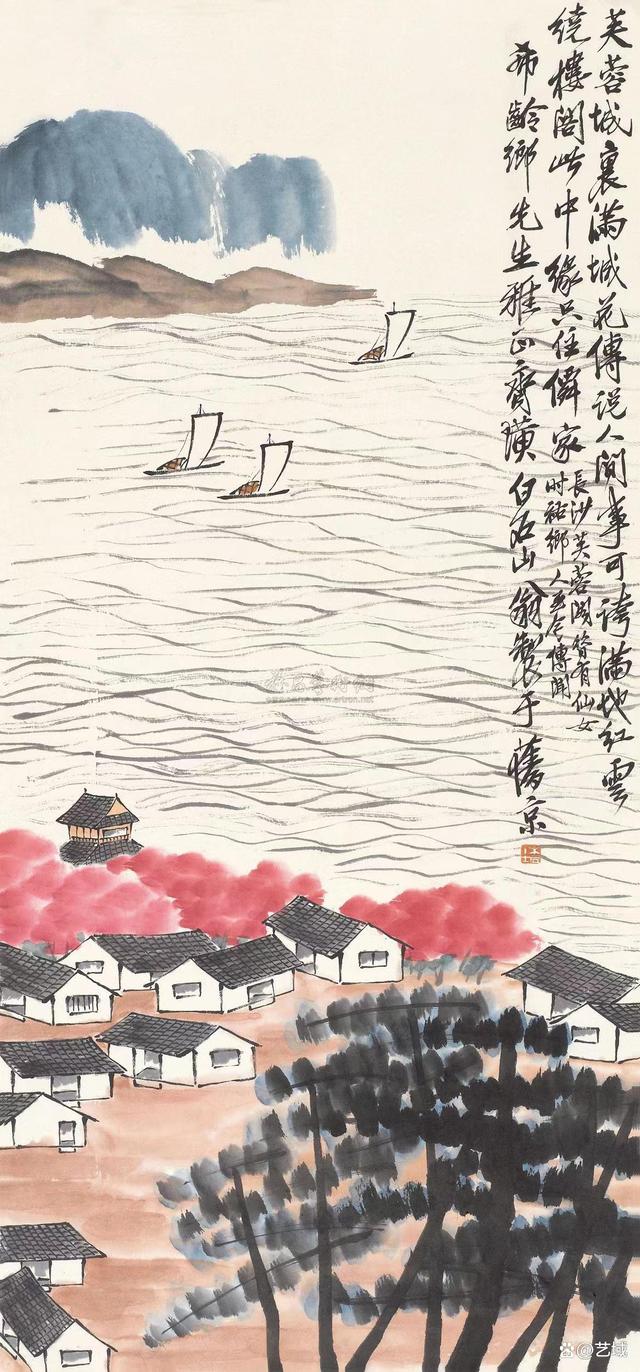 芙蓉城裏滿城花傳說人間事可誇滿地紅雲
繞樓閣此中緣只住僊家
長沙芙蓉閣昔有仙女
时鄉人至今傳聞
希齡鄉先生雅正齊璜白石山翁製于舊京
@艺域